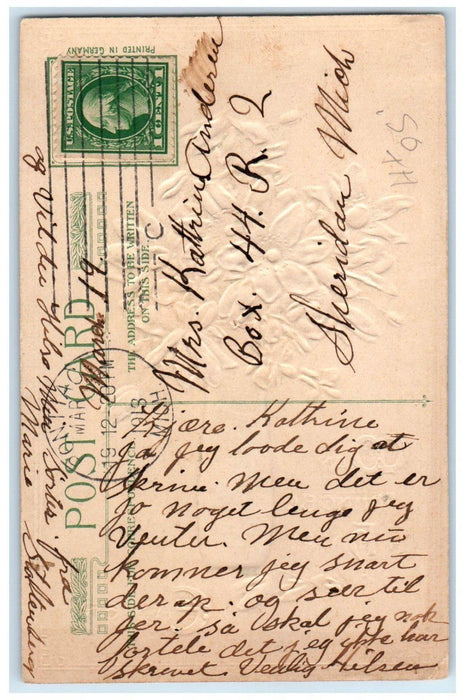 PRINTED IN GERMANY
U.S. POSTAGE
1 CENT 1
POST CARD
THE ADDRESS TO BE WRITTEN
ON THIS SIDE.
MAR 19
12
1913
MICH
March 19
Mrs. Kathrine Andersen
Box. 44. R. 2
Sheridan Mich
Kjære. Kathrine
ja jeg lovde dig at
skrive. Men det er
jo noget lenge jeg
venter. Men nu
kommer jeg snart
derop. og seer til
jer, så skal jeg nok
fortele det jeg ikke har
skrevet. Venlig hilsen
og Vil du hilse
Søster. fra
Marie